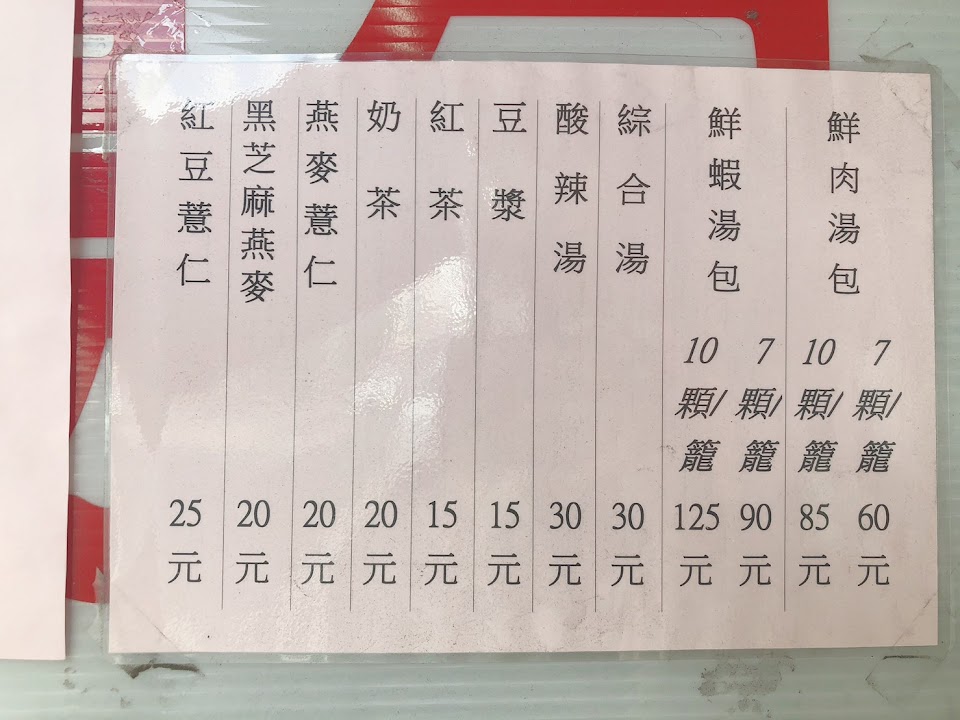 鮮肉湯包
7顆/籠 60元
10顆/籠 85元
鮮蝦湯包
7顆/籠 90元
10顆/籠 125元
綜合湯 30元
酸辣湯 30元
豆漿 15元
紅茶 15元
奶茶 20元
燕麥薏仁 20元
黑芝麻燕麥 20元
紅豆薏仁 25元